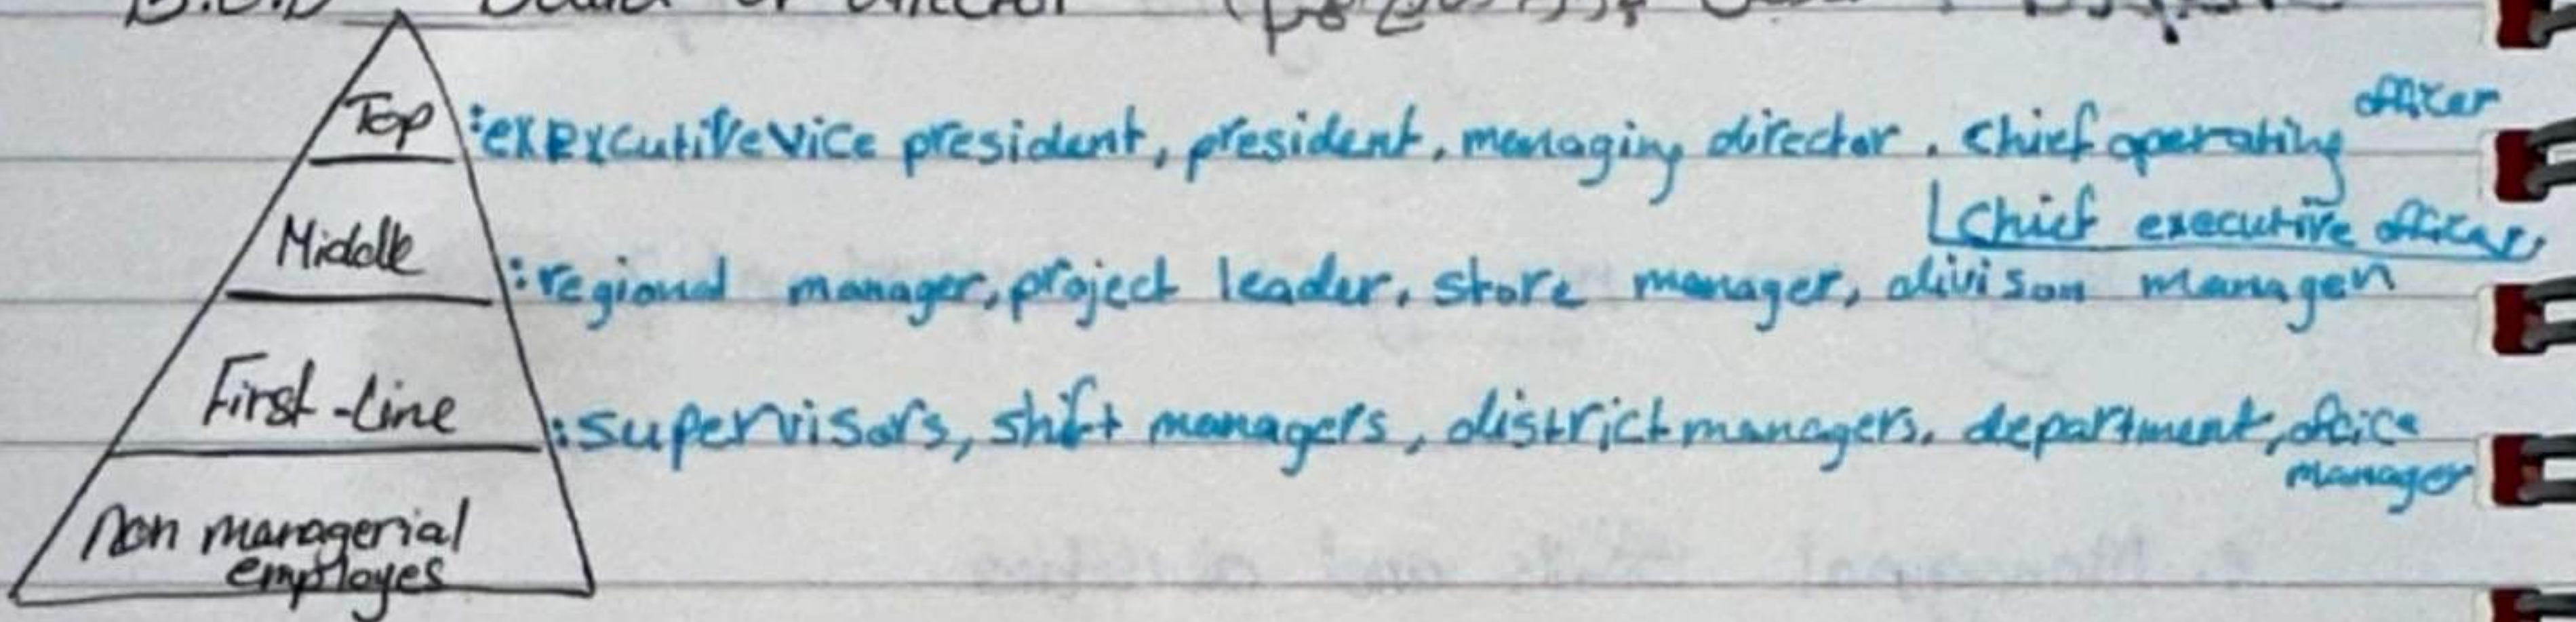 B.O.D Board of director
Top :exexcutive vice president, president, managing director, chief operating officer
chief executive officer,
Middle :regional manager, project leader, store manager, divison manager
First-Line :supervisors, shift managers, district managers, department, office
manager
Non managerial
employes